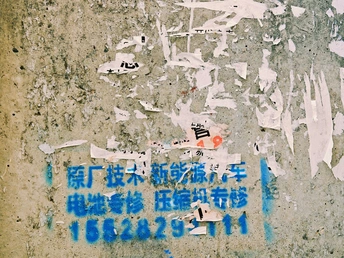 心
官
原厂技术 新能源汽车
电池专修 压缩机专修
15528293111